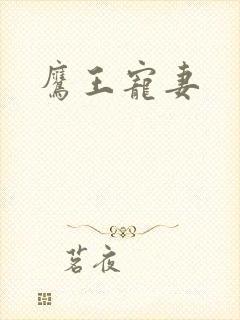 鷹王寵妻
茗夜